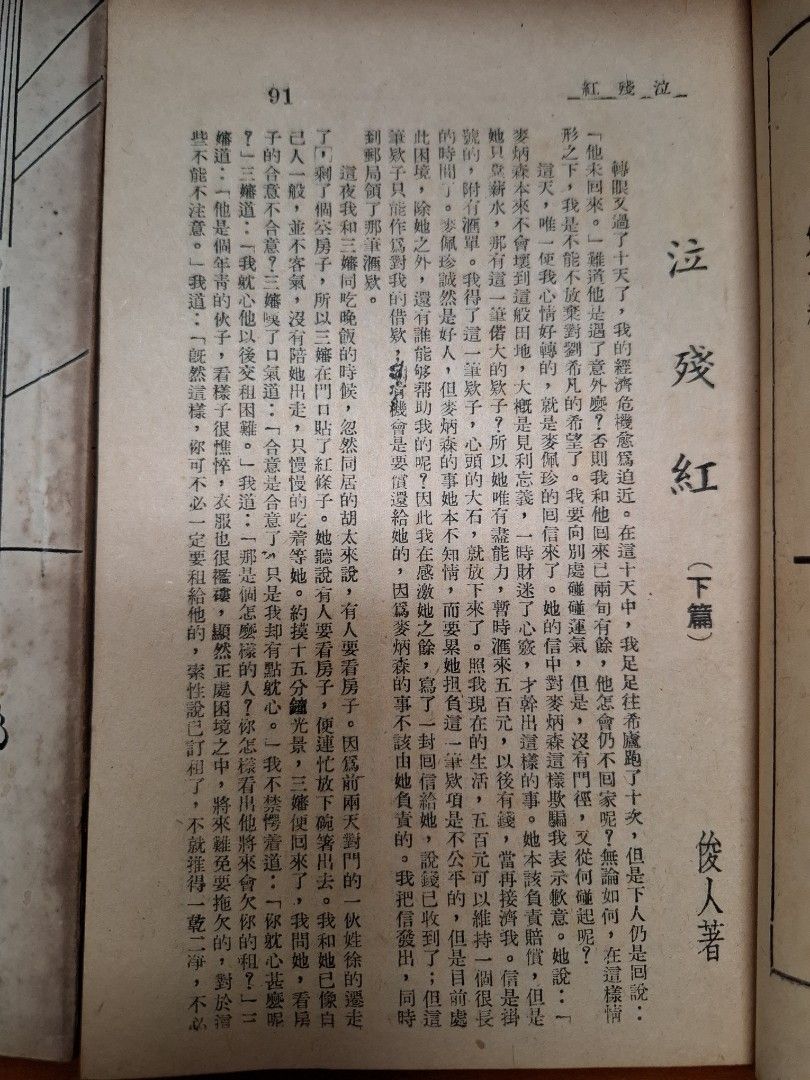 泣殘紅
91
泣殘紅(下篇)
俊人著
轉眼又過了十天了,我的經濟危機愈爲迫近。在這十天中,我足足往希廬跑了十次,但是下人仍是回說:
「他未回來。」難道他是遇了意外麼?否則我和他回來已兩旬有餘,他怎會仍不回家呢?無論如何,在這樣情
形之下,我是不能不放棄對劉希凡的希望了。我要向別處碰碰運氣,但是,沒有門徑,又從何碰起呢?
這天,唯一使我心情好轉的,就是麥佩珍的回信來了。她的信中對麥炳森這樣欺騙我表示歉意。她說:「
麥炳森本來不會壞到這般田地,大概是見利忘義,一時財迷了心竅,才幹出這樣的事。她本該負責賠償,但是
她只靠薪水,那有這一筆偌大的欵子?所以她唯有盡能力,暫時滙來五百元,以後有錢,當再接濟我。信是掛
號的,附有滙單。我得了這一筆欵子,心頭的大石,就放下來了。照我現在的生活,五百元可以維持一個很長
的時間了。麥佩珍誠然是好人,但麥炳森的事她本不知情,而要累她担負這一筆欵項是不公平的,但是目前處
此困境,除她之外,還有誰能够帮助我的呢?因此我在感激她之餘,寫了一封回信給她,說錢已收到了;但這
筆欵子只能作爲對我的借欵,有機會是要償還給她的,因爲麥炳森的事不該由她負責的。我把信發出,同時
到郵局領了那筆滙欵。
這夜我和三嬸同吃晚飯的時候,忽然同居的胡太來說,有人要看房子。因爲前兩天對門的一伙姓徐的遷走
了,剩了個空房子,所以三嬸在門口貼了紅條子。她聽說有人要看房子,便連忙放下碗箸出去。我和她已像自
己人一般,並不客氣,沒有陪她出走,只慢慢的吃着等她。約摸十五分鐘光景,三嬸便回來了,我問她,看房
子的合意不合意?三嬸嘆了口氣道:「合意是合意了,只是我却有點躭心。」我不禁愕着道:「你躭心甚麼呢
?」三嬸道:「我躭心他以後交租困難。」我道:「那是個怎麼樣的人?你怎樣看出他將來會欠你的租?」三
嬸道:「他是個年靑的伙子,看樣子很憔悴,衣服也很襤褸,顯然正處困境之中,將來難免要拖欠的,對於這
些不能不注意。」我道:「旣然這樣,你可不必一定要租給他的,索性說已訂租了,不就推得一乾二凈,不必